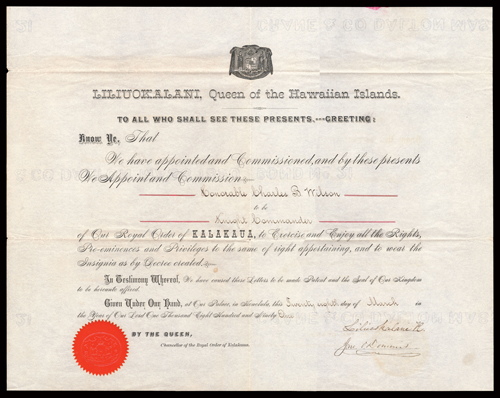 LILIUOKALANI, Queen of the Hawaiian Islands.
TO ALL WHO SHALL SEE THESE PRESENTS,---GREETING:
Know Ye, That
We have appointed and Commissioned, and by these presents
We Appoint and Commission
Honorable Charles B Wilson
to be
Knight Commander
of Our Royal Order of KALAKAUA, to Exercise and Enjoy all the Rights,
Pre-eminences and Privileges to the same of right appertaining, and to wear the
Insignia as by Decree created.
In Testimony Whereof, We have caused these Letters to be made Patent and the Seal of Our Kingdom
to be hereunto affixed.
Given Under Our Hand, at Our Palace, in Honolulu, this Twenty eighth day of March in
the Year of Our Lord One Thousand Eight Hundred and Ninety
Liliuokalani R
BY THE QUEEN,
Chancellor of the Royal Order of Kalakaua.